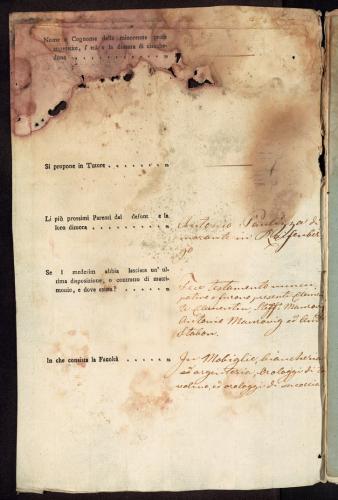 Nome e Cognome delle minorenne prole
superstite, l' età e la dimora di ciasche-
duna . . . . . . . . . . . . . . „
Si propone in Tutore . . . . . . . . „
Li più prossimi Parenti dal defont e la
loro dimora . . . . . . . . . . . „
Antonio di
morante in Reifenber
go
Se i medesim abbia lasciato un' ul-
tima disposizione, o contratto di matri-
monio, e dove esista? . . . . . . . . „
testamento nuncu
pativo e furono presenti
Clementin, Steff.
Antonio ed
Stabon.
In che consista la Facoltà . . . . . „
In Mobiglie, biancheria
ed argenteria, Orologgi di ta
volino, ed orologgi di saccoccia